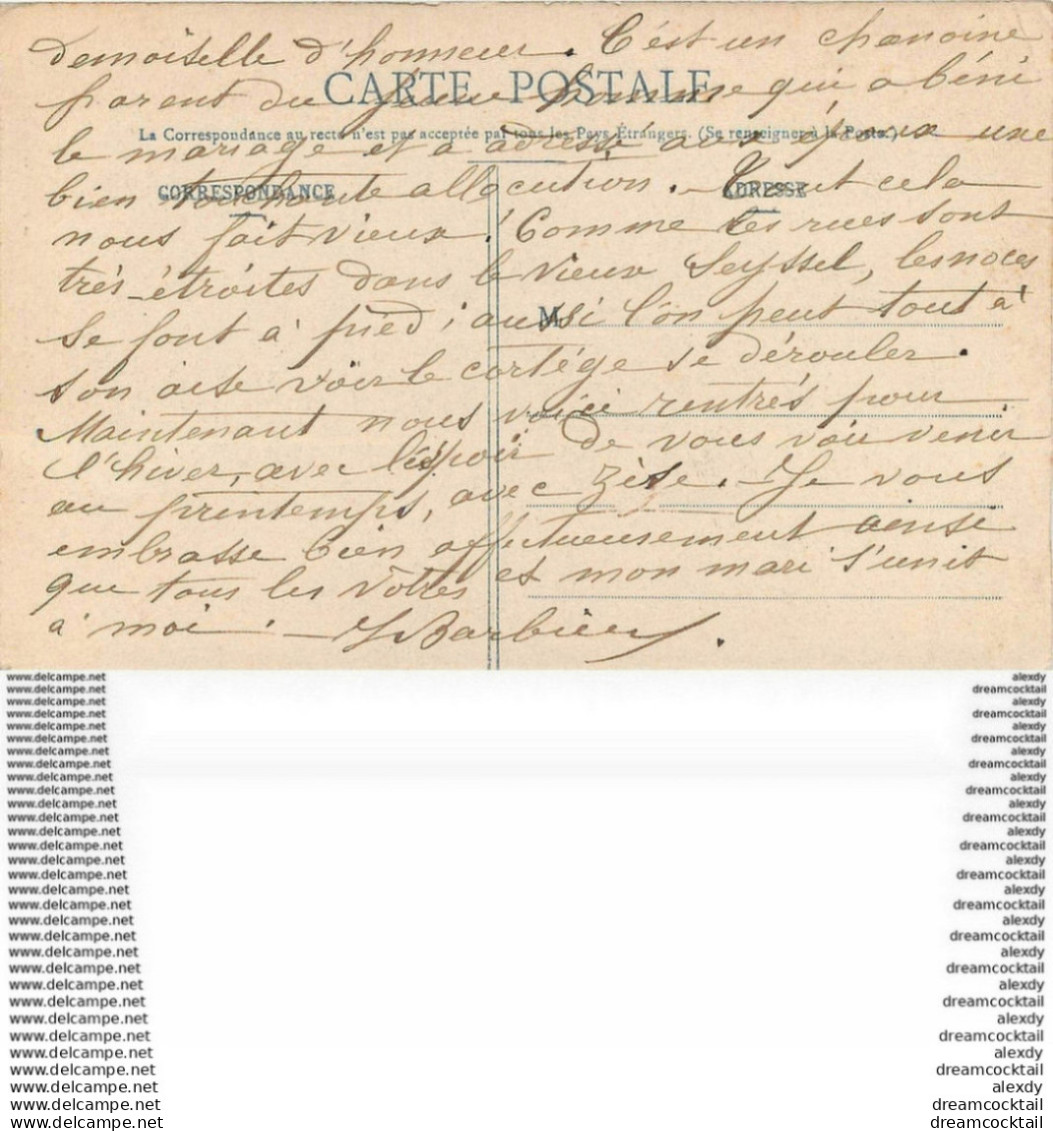 demoiselle d'honneur. C'est un chanoine
CARTE POSTALE
parent du jeune homme qui a béni
La Correspondance au recto n'est pas acceptée par tous les Pays Étrangers. (Se renseigner à la Poste.)
le mariage et a adressé aux époux une
CORRESPONDANCE
ADRESSE
bien touchante allocution. - Tout cela
nous fait vieux! Comme les rues sont
très-étroites dans le vieux Seyssel, les noces
M
se font à pied; aussi l'on peut tout à
son aise voir le cortège se dérouler.
Maintenant nous voici rentrés pour
l'hiver, avec l'espoir de vous voir venir
au printemps, avec Zèse. - Je vous
embrasse bien affectueusement ainsi
que tous les vôtres et mon mari s'unit
à moi. - Barbier
www.delcampe.net alexdy
www.delcampe.net dreamcocktail
www.delcampe.net alexdy
www.delcampe.net dreamcocktail
www.delcampe.net alexdy
www.delcampe.net dreamcocktail
www.delcampe.net alexdy
www.delcampe.net dreamcocktail
www.delcampe.net alexdy
www.delcampe.net dreamcocktail
www.delcampe.net alexdy
www.delcampe.net dreamcocktail
www.delcampe.net alexdy
www.delcampe.net dreamcocktail
www.delcampe.net alexdy
www.delcampe.net dreamcocktail
www.delcampe.net alexdy
www.delcampe.net dreamcocktail
www.delcampe.net alexdy
www.delcampe.net dreamcocktail
www.delcampe.net alexdy
www.delcampe.net dreamcocktail
www.delcampe.net alexdy
www.delcampe.net dreamcocktail
www.delcampe.net alexdy
www.delcampe.net dreamcocktail
www.delcampe.net alexdy
www.delcampe.net dreamcocktail
www.delcampe.net alexdy
www.delcampe.net dreamcocktail
www.delcampe.net dreamcocktail